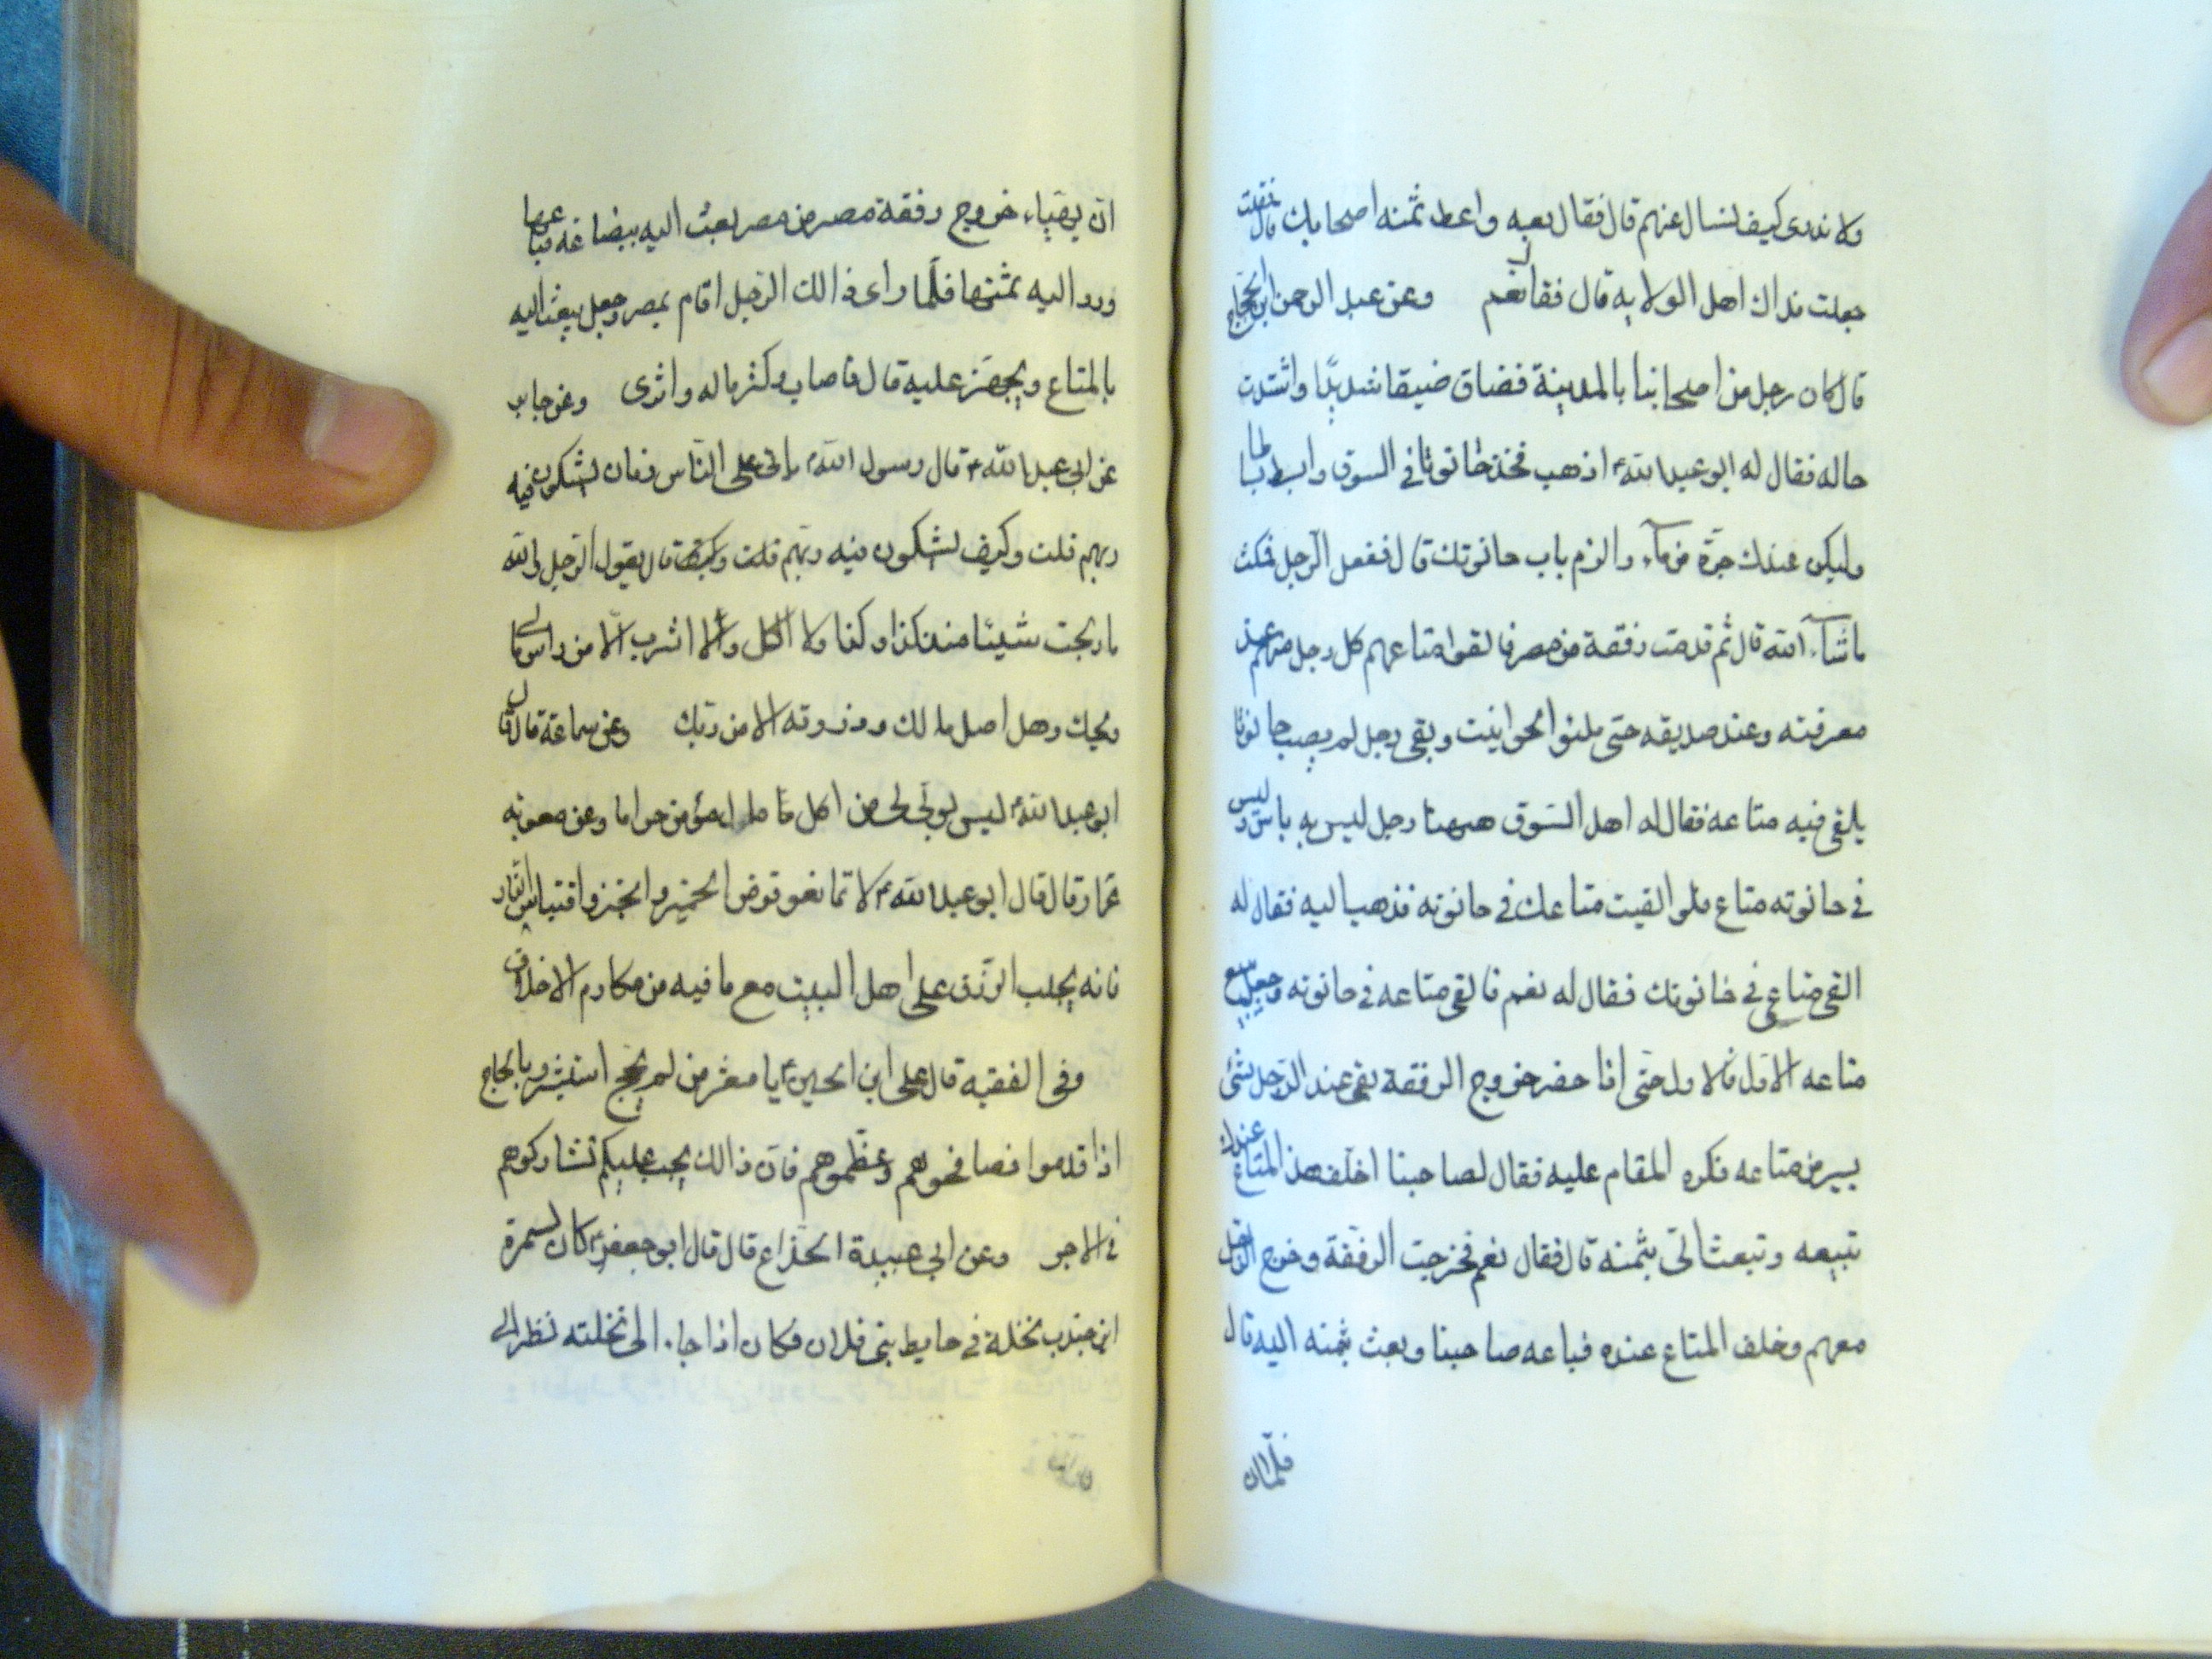 ولا ندرى كيف نسال عنهم قال فقال بعه واعط ثمنه اصحابك قال فقلت
جعلت فداك اهل الولاية قال فقال نعم وعن عبد الرحمن ابن الحجاج
قال كان رجل من اصحابنا بالمدينة فضاق ضيقا شديدا واشتدت
حاله فقال له ابو عبد الله ع اذهب فخذ حانوتا في السوق وابسط بساطا
وليكن عندك جرة من ماء والزم باب حانوتك قال ففعل الرجل فمكث
ما شاء الله قال ثم قدمت رفقة من مصر فالقوا متاعهم كل رجل منهم عند
معرفته وعند صديقه حتى ملئوا الحوانيت وبقى رجل لم يصب حانوتا
يلقى فيه متاعه فقال له اهل السوق ههنا رجل ليس به باس وليس
في حانوته متاع فلو القيت متاعك في حانوته فذهب اليه فقال له
القى متاعي في حانوتك فقال له نعم فالقى متاعه في حانوته وجعل يبيع
متاعه الاول فالاول حتى اذا حضر خروج الرفقة بقى عند الرجل شئ
يسير من متاعه فكره المقام عليه فقال لصاحبنا اخلف هذا المتاع عندك
تبيعه وتبعث الى بثمنه قال فقال نعم فخرجت الرفقة وخرج الرجل
معهم وخلف المتاع عنده فباعه صاحبنا وبعث بثمنه اليه قال
فلما ان
ان يهياء خروج رفقة مصر من مصر بعث اليه ببضاعة فباعها
ورد اليه بثمنها فلما راى ذالك الرجل اقام بمصر وجعل يبعث اليه
بالمتاع ويجهز عليه قال فاصاب وكثر ماله واثرى وعن جابر
عن ابي عبد الله ع قال رسول الله ياتى على الناس زمان يشكون فيه
ربهم قلت وكيف يشكون فيه ربهم قلت وكيف قال يقول الرجل والله
ما ربحت شيئا منذ كذا وكذا ولا اكل ولا اشرب الا من راس مالى
ويحك وهل اصل مالك وذروته الا من ربك وعن سماعة قال قال
ابو عبد الله ع ليس بولى لى من اكل مال مؤمن حراما وعن معوية
عمار قال قال ابو عبد الله ع لا تمانعوا قرض الخمير والخبز واقتباس النار
فانه يجلب الرزق على اهل البيت مع ما فيه من مكارم الاخلاق
وفى الفقيه قال على ابن الحسين ع يا معشر من لم يحج استبشروا بالحاج
اذا قدموا فصافحوهم وعظموهم فان ذالك يجب عليكم تشاركوهم
في الاجر وعن ابي عبيدة الحذاء قال قال ابو جعفر ع كان لسمرة
ابن جندب نخلة في حايط بنى فلان فكان اذا جاء الى نخلته نظر الى